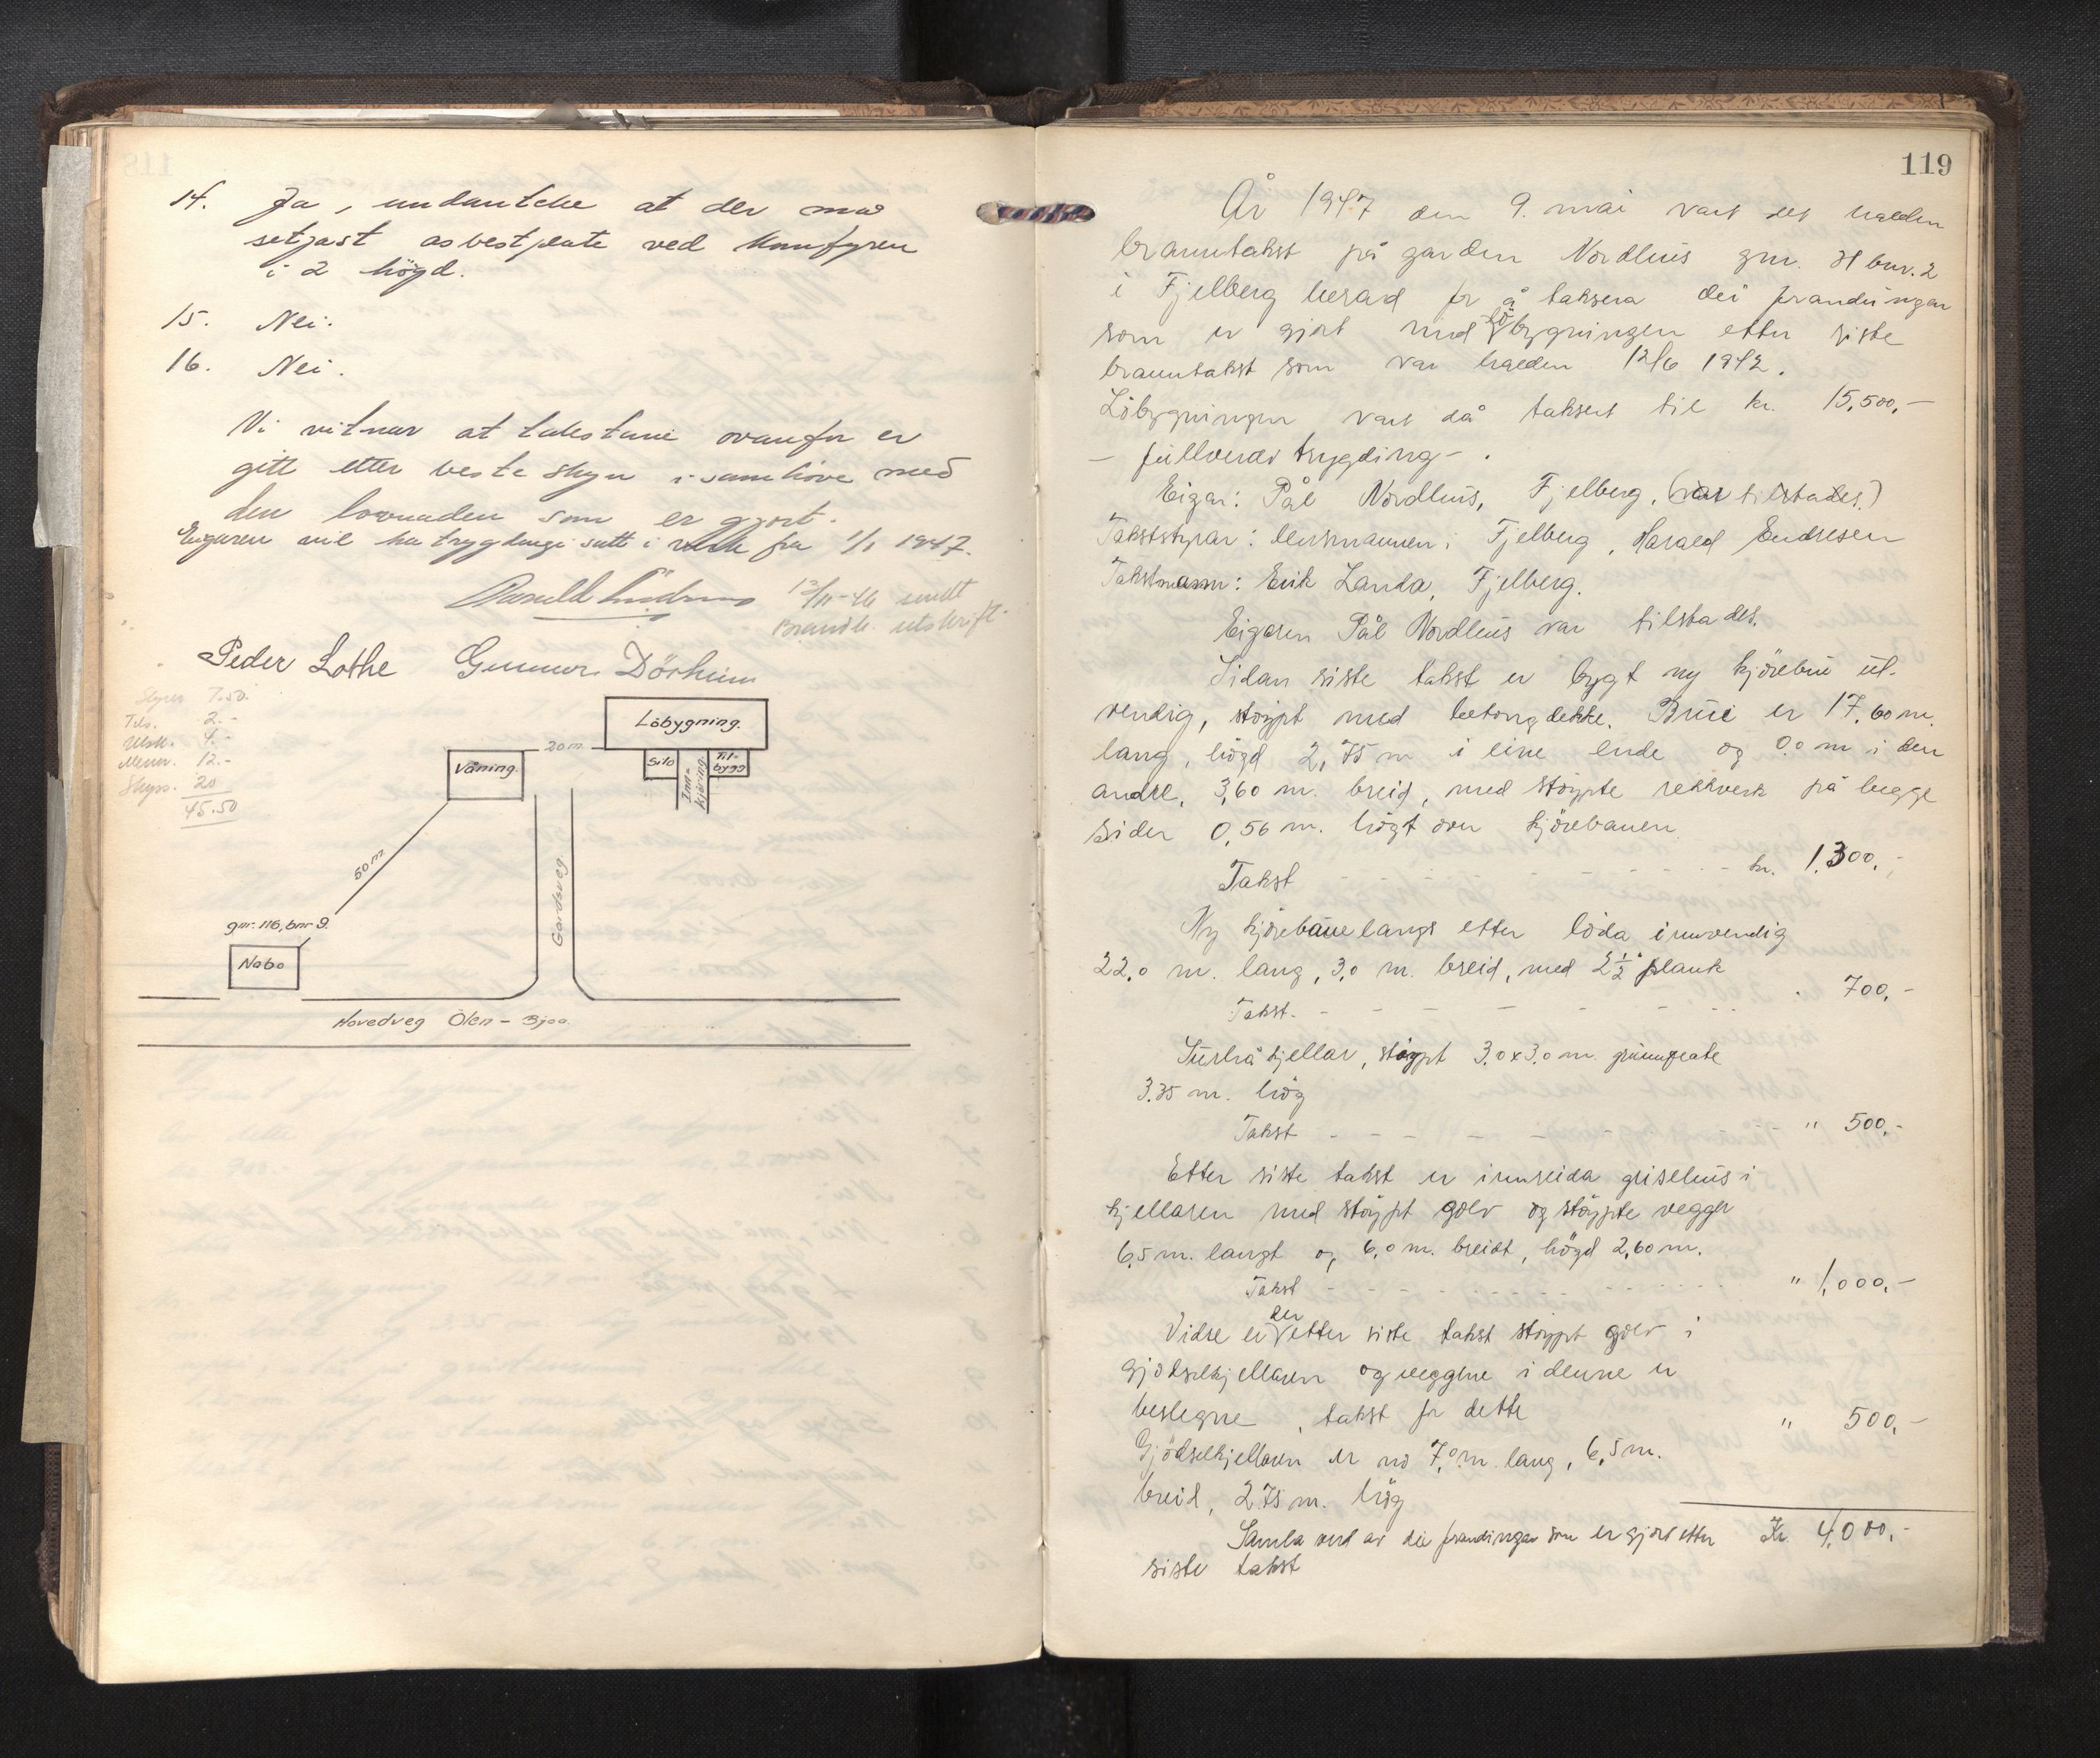 14. Ja, undantekne at der må
setjast asbestplate ved komfyren
i 2 högd.
15. Nei.
16. Nei.
Vi vitnar at takstane ovanfor er
gitt etter beste skyn i samhöve med
den lovnaden som er gjort.
Eigaren vil ha trygdinge satt i verk fra 1/1 1947.
Harald Endresen 13/11-46 sendt
Brandk. utskrift.
Peder Lothe Gunnar Dörheim
Styrer 7.50
Tils. 2.-
Utsk. 4.-
Menn. 12.-
Skyss. 20
45.50
Löbygning.
20 m.
Våning.
Silo
Inn-
kjöring
Til-
bygg
50 m.
Gardsveg
gnr. 116, bnr 9.
Nabo
Hovedveg Ölen - Bjoa.
119
År 1947 den 9. mai vart det halden
branntakst på garden Nordhus gnr. 31 bnr. 2
i Fjelberg herad for å taksera dei forandringar
som er gjort med löbygningen etter siste
branntakst som var halden 12/6 1942.
Löbygningen vart då taksert til kr. 15,500,-
- fullverdi trygding - .
Eigar: Pål Nordhus, Fjelberg. (var tilstades.)
Takststyrar: lensmannen i Fjelberg, Harald Endresen
Takstmann: Erik Landa, Fjelberg.
Eigaren Pål Nordhus var tilstades.
Sidan siste takst er bygt ny kjörebru ut-
vendig, stöypt med betongdekke. Brui er 17,60 m.
lang, högd 2,75 m i eine ende og 0.0 m i den
andre, 3,60 m. breid, med stöypte rekkverk på begge
sider 0,56 m. högt over kjörebanen
Takst - - - - - - - - - - kr. 1.300,-
Ny kjörebane langs etter löda innvendig
22,0 m. lang, 3,0 m. breid, med 2 1/2" plank
Takst. - - - - - - - - " 700,-
Surhåkjellar, stöypt 3,0 x 3,0 m. grunnflate
3.35 m. hög
Takst - - - - - - - - " 500,-
Etter siste takst er innreida grisehus i
kjellaren med stöypt golv og stöypte vegger
6,5 m. langt og 6,0 m. breidt, högd 2,60 m.
Takst - - - - - - - - " 1,000,-
Vidre er der etter siste takst stöypt golv i
gjödselkjellaren og veggene i denne er
beslegne, takst for dette " 500,-
Gjödselkjellaren er no 7,0 m. lang, 6,5 m.
breid, 2.75 m. hög
Samla verd av dei forandringar som er gjort etter Kr. 4,000,-
siste takst